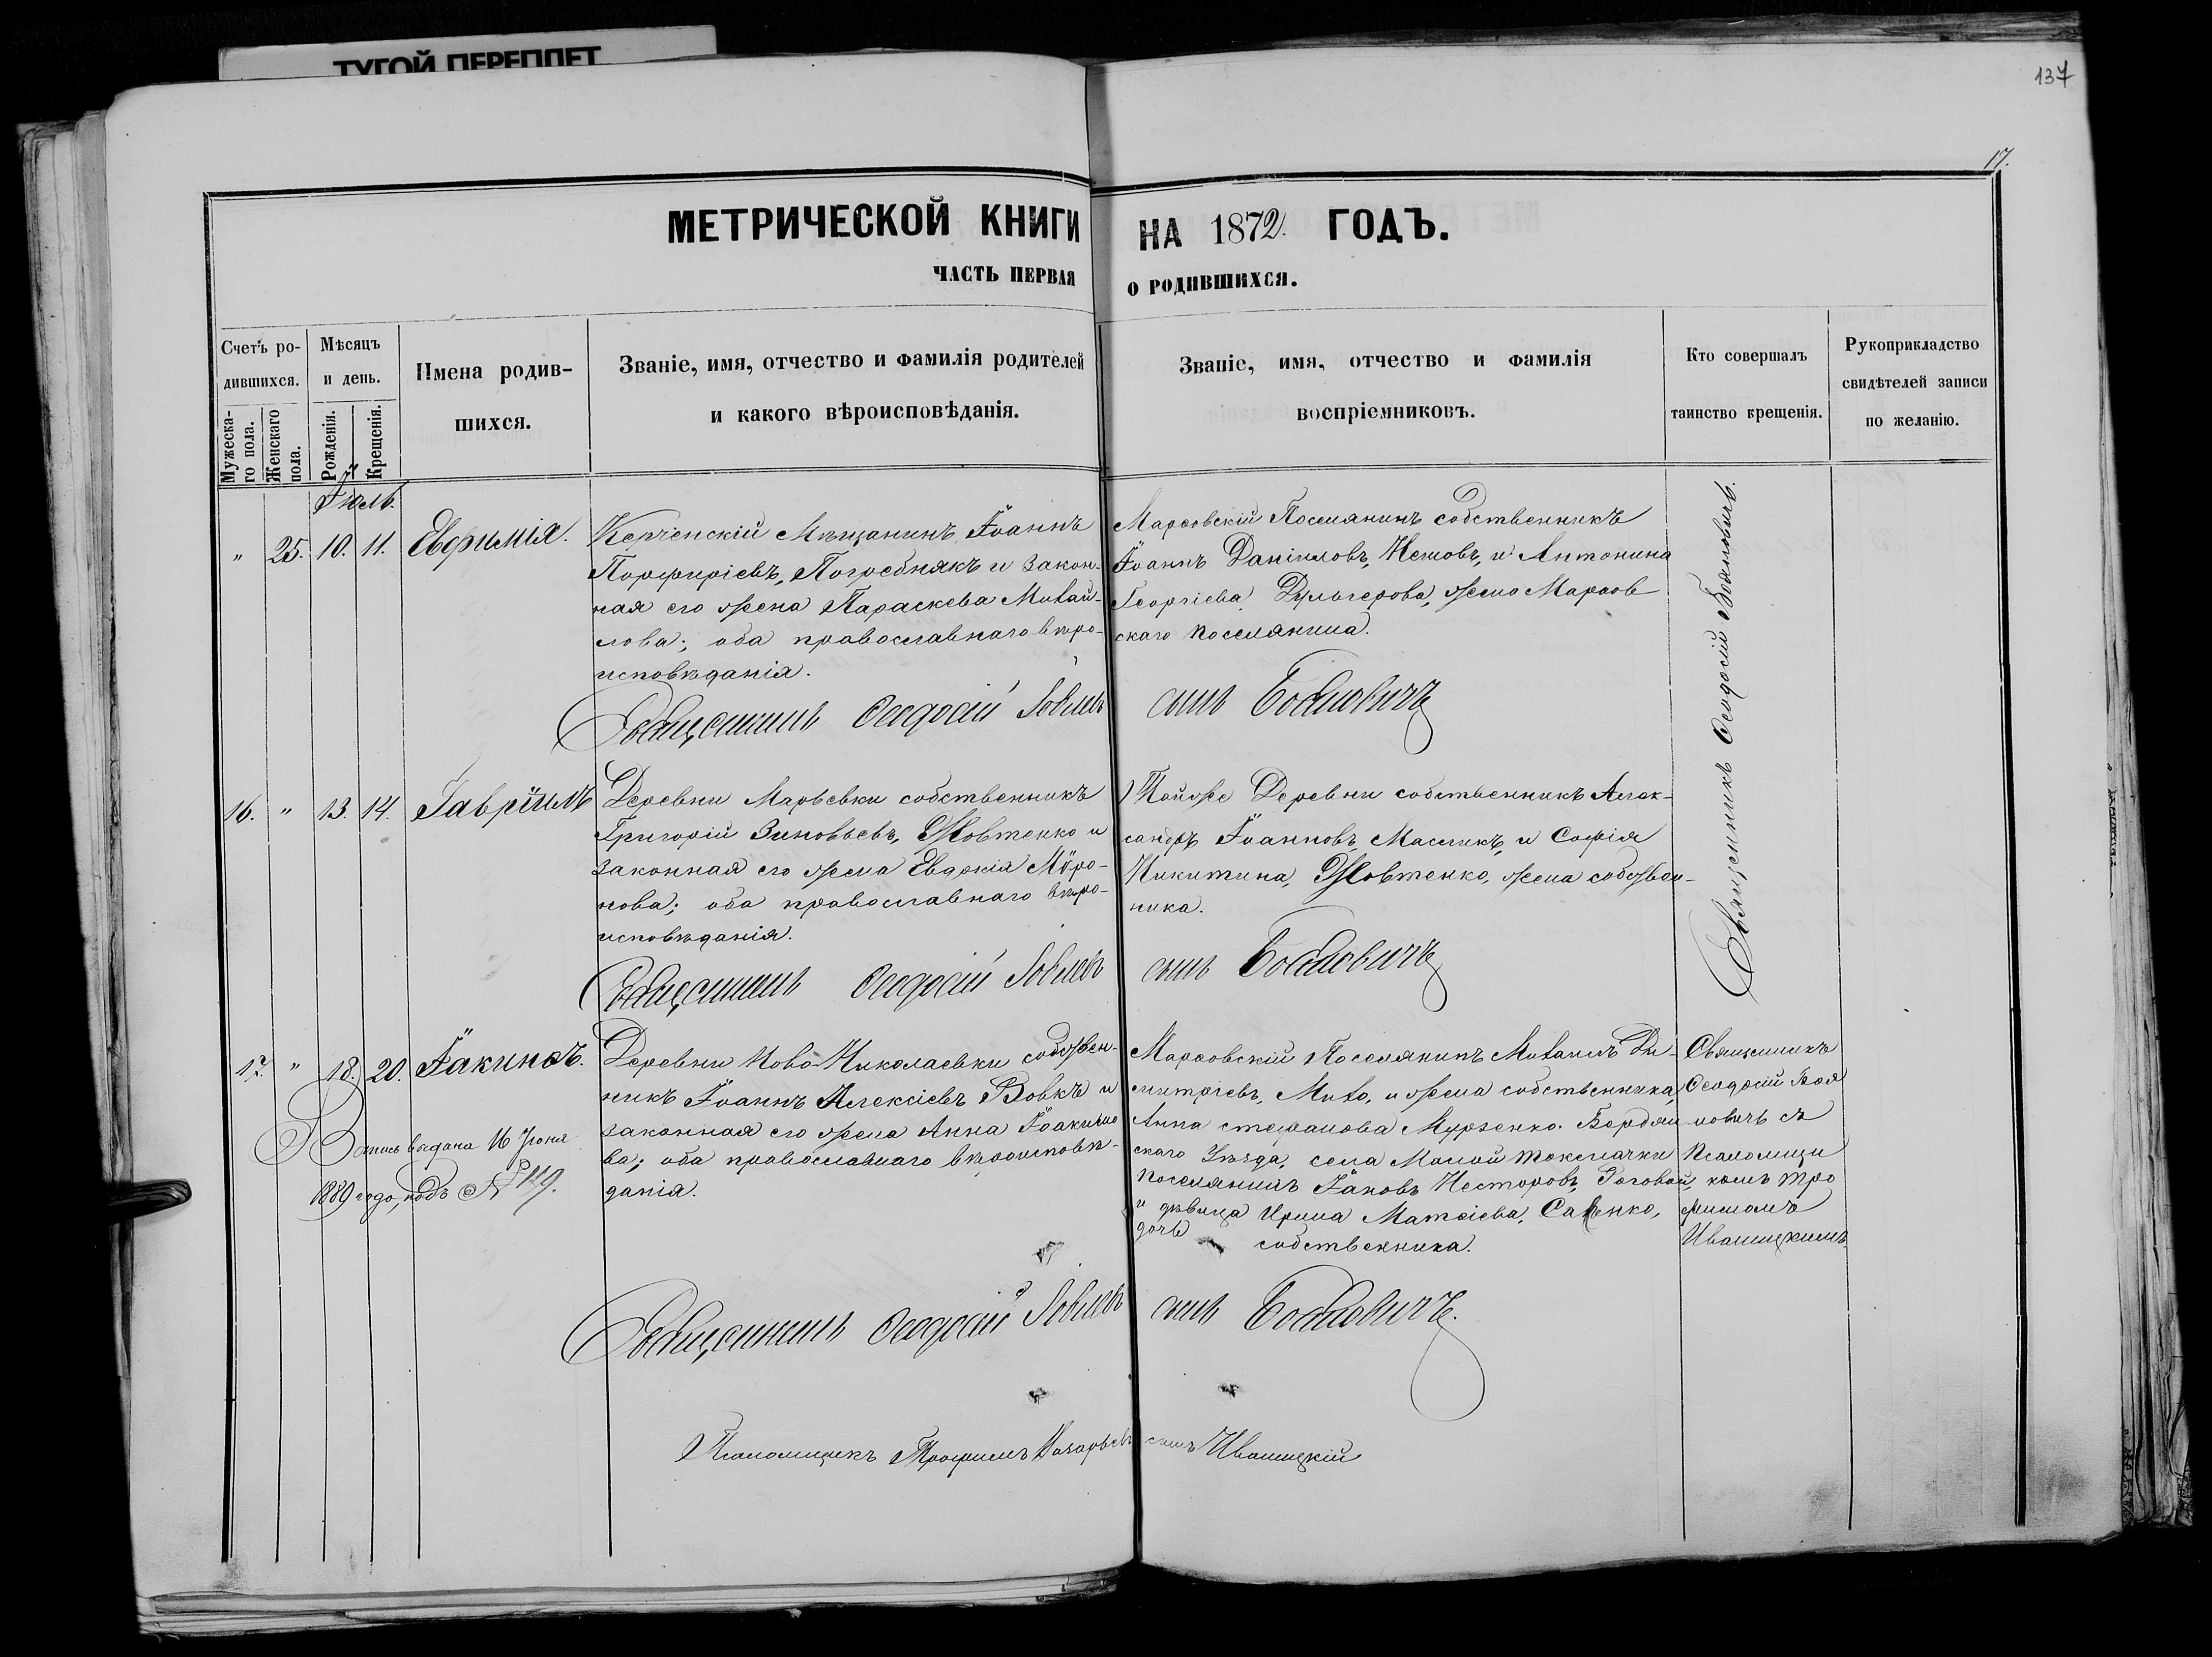 ТУГОЙ ПЕРЕПЛЕТ
137
17.
МЕТРИЧЕСКОЙ КНИГИ НА 1872. ГОДЪ.
ЧАСТЬ ПЕРВАЯ О РОДИВШИХСЯ.
Счетъ ро-
дившихся.
Мужеска-
го пола.
Женскаго
пола.
Мѣсяцъ
и день.
Рожденія.
Крещенія.
Имена родив-
шихся.
Званіе, имя, отчество и фамилія родителей
и какого вѣроисповѣданія.
Званіе, имя, отчество и фамилія
воспріемниковъ.
Кто совершалъ
таинство крещенія.
Рукоприкладство
свидѣтелей записи
по желанію.
Іюль.
" 25. 10. 11. Евфимія.
Керченскій Мѣщанинъ Іоаннъ
Порфиріевъ, Погребнякъ и закон-
ная его жена Параскева Михай-
лова; оба православнаго вѣро-
исповѣданія.
Марфовскій Поселянинъ собственникъ
Іоаннъ Даніиловъ, и Антонина
Георгіева, Дульгерова, жена Марфов
скаго поселянина.
Священникъ Ѳеодосій Іовлевъ сынъ Бояновичъ
Священникъ Ѳеодосій Бояновичъ.
16. " 13. 14. Гавріилъ
Деревни Марьевки собственникъ
Григорій Зиновьевъ, Жовтенко и
законная его жена Евдокія Мѵро-
нова; оба православнаго вѣро-
исповѣданія.
Тойже Деревни собственникъ Алек-
сандръ Іоанновъ, Масликъ, и Софія
Никитина, Жовтенко, жена собствен-
ника.
Священникъ Ѳеодосій Іовлевъ сынъ Бояновичъ
17. " 18. 20. Іакинѳъ.
Деревни Ново-Николаевки собствен-
никъ Іоаннъ Алексіевъ Вовкъ и
законная его жена Анна Іоакимо
ва; оба православнаго вѣроисповѣ-
данія.
выдана 16 Іюня
1889 года, подъ № 119.
Марфовскій Поселянинъ Михаилъ Ди-
митріевъ, Михо, и жена собственника,
Анна стефанова Мурзенко. Бердян
скаго Уѣзда, села Малой токмачки
поселянинъ Іаковъ Несторовъ, Гоговой,
и дѣвица Ирина Матѳіева,
дочь собственника.
Священникъ
Ѳеодосій Боя
новичъ съ
Псаломщи
комъ Тро
фимомъ
Иваницкимъ.
Священникъ Ѳеодосій Іовлевъ сынъ Бояновичъ.
Псаломщикъ Трофимъ Назарьевъ сынъ Иваницкій